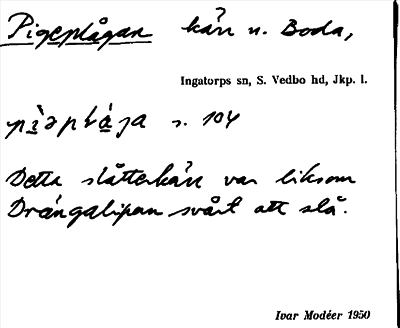 Pigeplågan kärr n. Boda,
Ingatorps sn, S. Vedbo hd, Jkp. l.
s. 104
Detta slåtterkärr var liksom
Drängalipan svårt att slå.
Ivar Modéer 1950